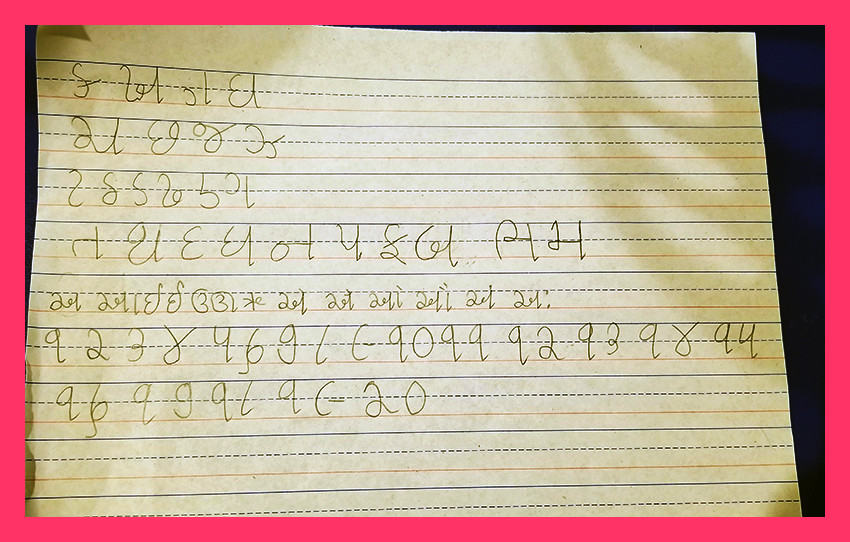 ક ખ ગ ઘ
ચ છ જ ઝ
ટ ઠ ડ ઢ ણ
ત થ દ ધ ન પ ફ બ ભ મ
અ આ ઇ ઈ ઉ ઊ ઋ એ ઐ ઓ ઔ અં અઃ
૧ ૨ ૩ ૪ ૫ ૬ ૭ ૮ ૯ ૧૦ ૧૧ ૧૨ ૧૩ ૧૪ ૧૫
૧૬ ૧૭ ૧૮ ૧૯ ૨૦